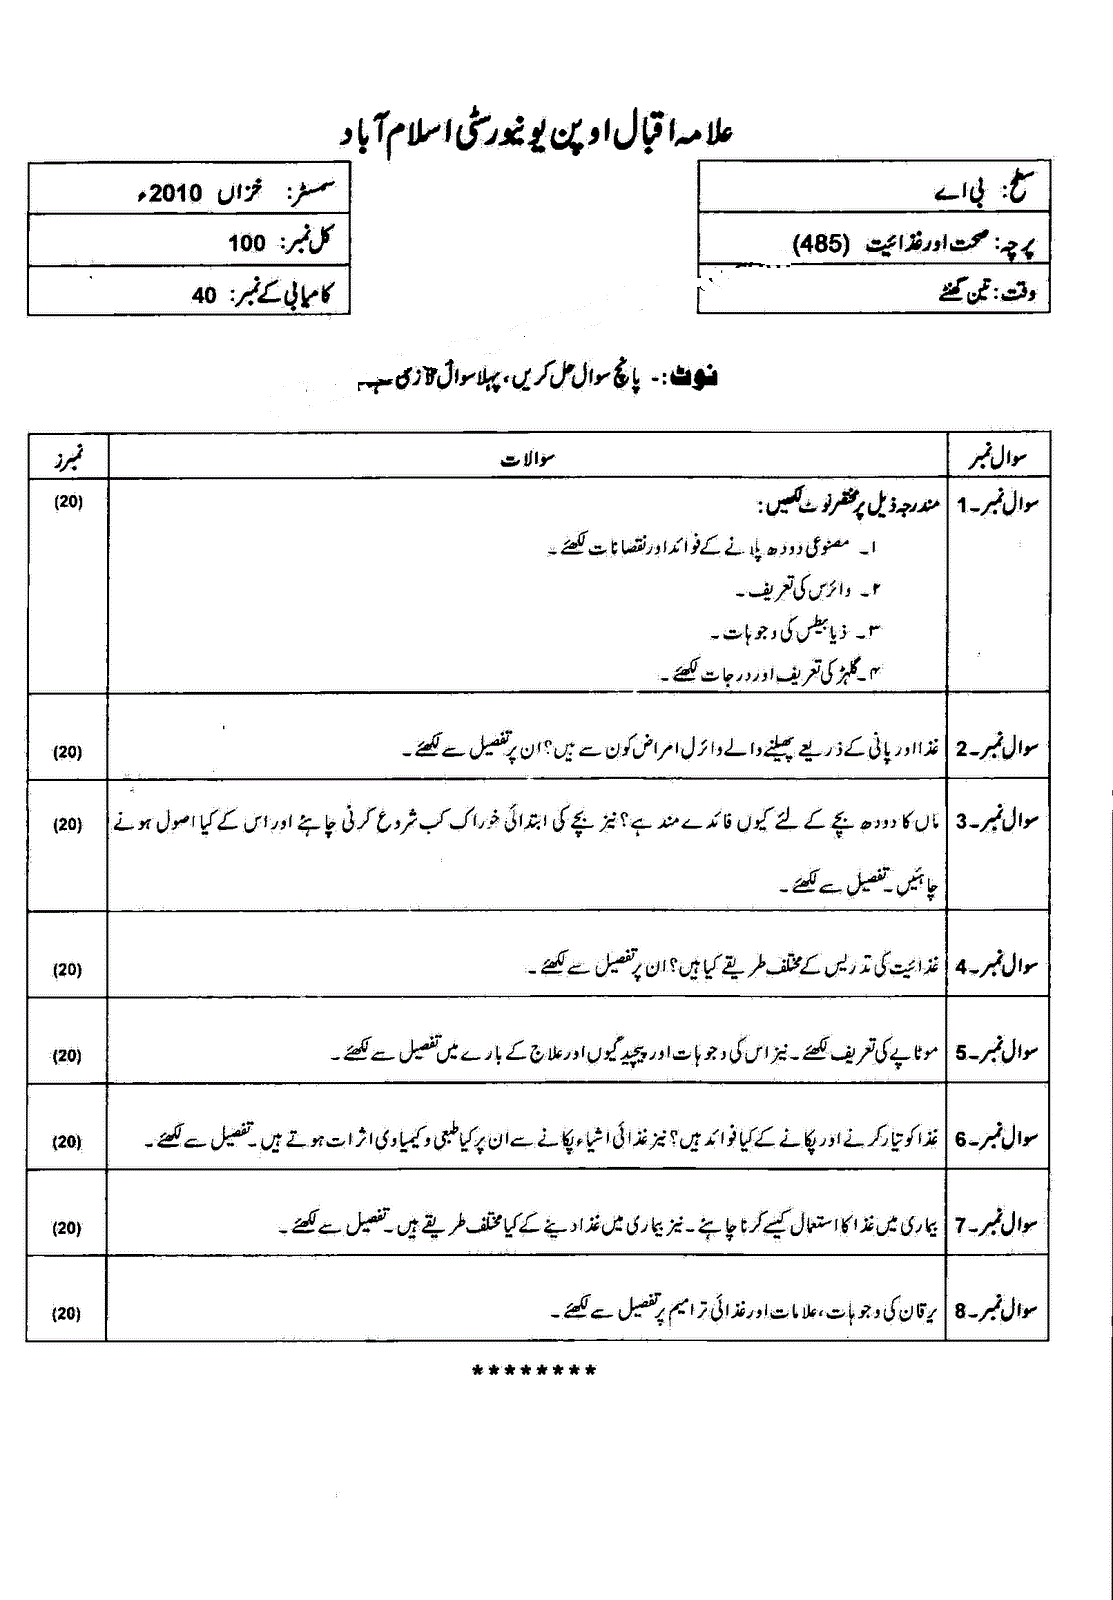 علامہ اقبال اوپن یونیورسٹی اسلام آباد
سطح: بی اے
سمسٹر: خزاں 2010ء
پرچہ: صحت اور غذائیت (485)
کل نمبر: 100
وقت: تین گھنٹے
کامیابی کے نمبر: 40
نوٹ:۔ پانچ سوال حل کریں، پہلا سوال لازمی ہے
سوال نمبر سوالات نمبرز
سوال نمبر۔1 مندرجہ ذیل پر مختصر نوٹ لکھیں: (20)
۱۔ مصنوعی دودھ پلانے کے فوائد اور نقصانات لکھئے۔
۲۔ وائرس کی تعریف۔
۳۔ ذیابیطس کی وجوہات۔
۴۔ گلہڑ کی تعریف اور درجات لکھئے۔
سوال نمبر۔2 غذا اور پانی کے ذریعے پھیلنے والے وائرل امراض کون سے ہیں؟ ان پر تفصیل سے لکھئے۔ (20)
سوال نمبر۔3 ماں کا دودھ بچے کے لئے کیوں فائدے مند ہے؟ نیز بچے کی ابتدائی خوراک کب شروع کرنی چاہئے اور اس کے کیا اصول ہونے (20)
چاہئیں۔ تفصیل سے لکھئے۔
سوال نمبر۔4 غذائیت کی تدریس کے مختلف طریقے کیا ہیں؟ ان پر تفصیل سے لکھئے۔ (20)
سوال نمبر۔5 موٹاپے کی تعریف لکھئے۔ نیز اس کی وجوہات اور پیچیدگیوں اور علاج کے بارے میں تفصیل سے لکھئے۔ (20)
سوال نمبر۔6 غذا کو تیار کرنے اور پکانے کے کیا فوائد ہیں؟ نیز غذائی اشیاء پکانے سے ان پر کیا طبعی و کیمیاوی اثرات ہوتے ہیں۔ تفصیل سے لکھئے۔ (20)
سوال نمبر۔7 بیماری میں غذا کا استعمال کیسے کرنا چاہئے۔ نیز بیماری میں غذا دینے کے کیا مختلف طریقے ہیں۔ تفصیل سے لکھئے۔ (20)
سوال نمبر۔8 یرقان کی وجوہات، علامات اور غذائی ترامیم پر تفصیل سے لکھئے۔ (20)
********